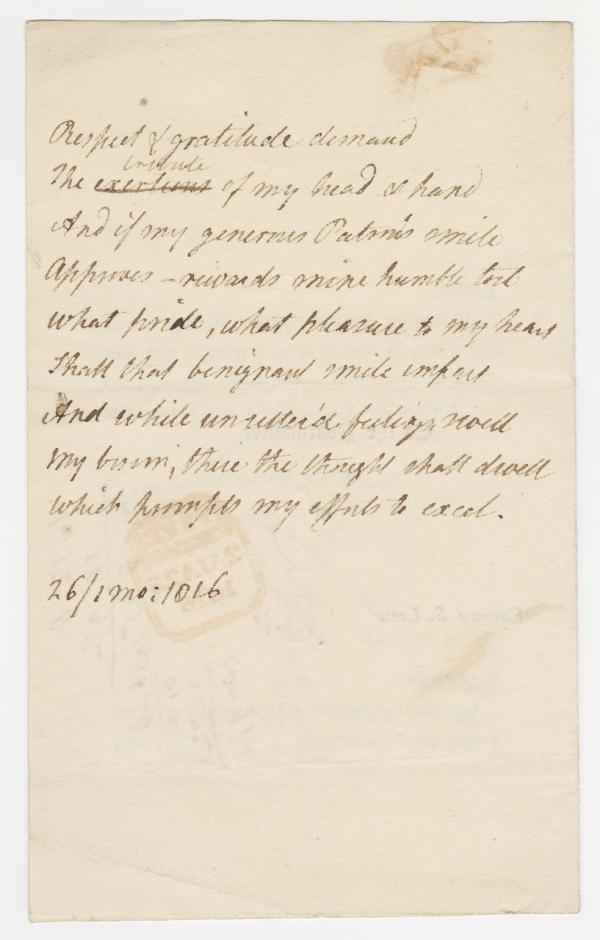 Respect & gratitude demand
tribute
The exertions of my head & hand
And if my generous Patron's smile
Approves - rewards mine humble toil
What pride, what pleasure to my heart
Shall that benignant smile impart
And while unutter'd feelings swell
My bosom, there the thought shall dwell
Which prompts my efforts to excel.
26/1 mo: 1816